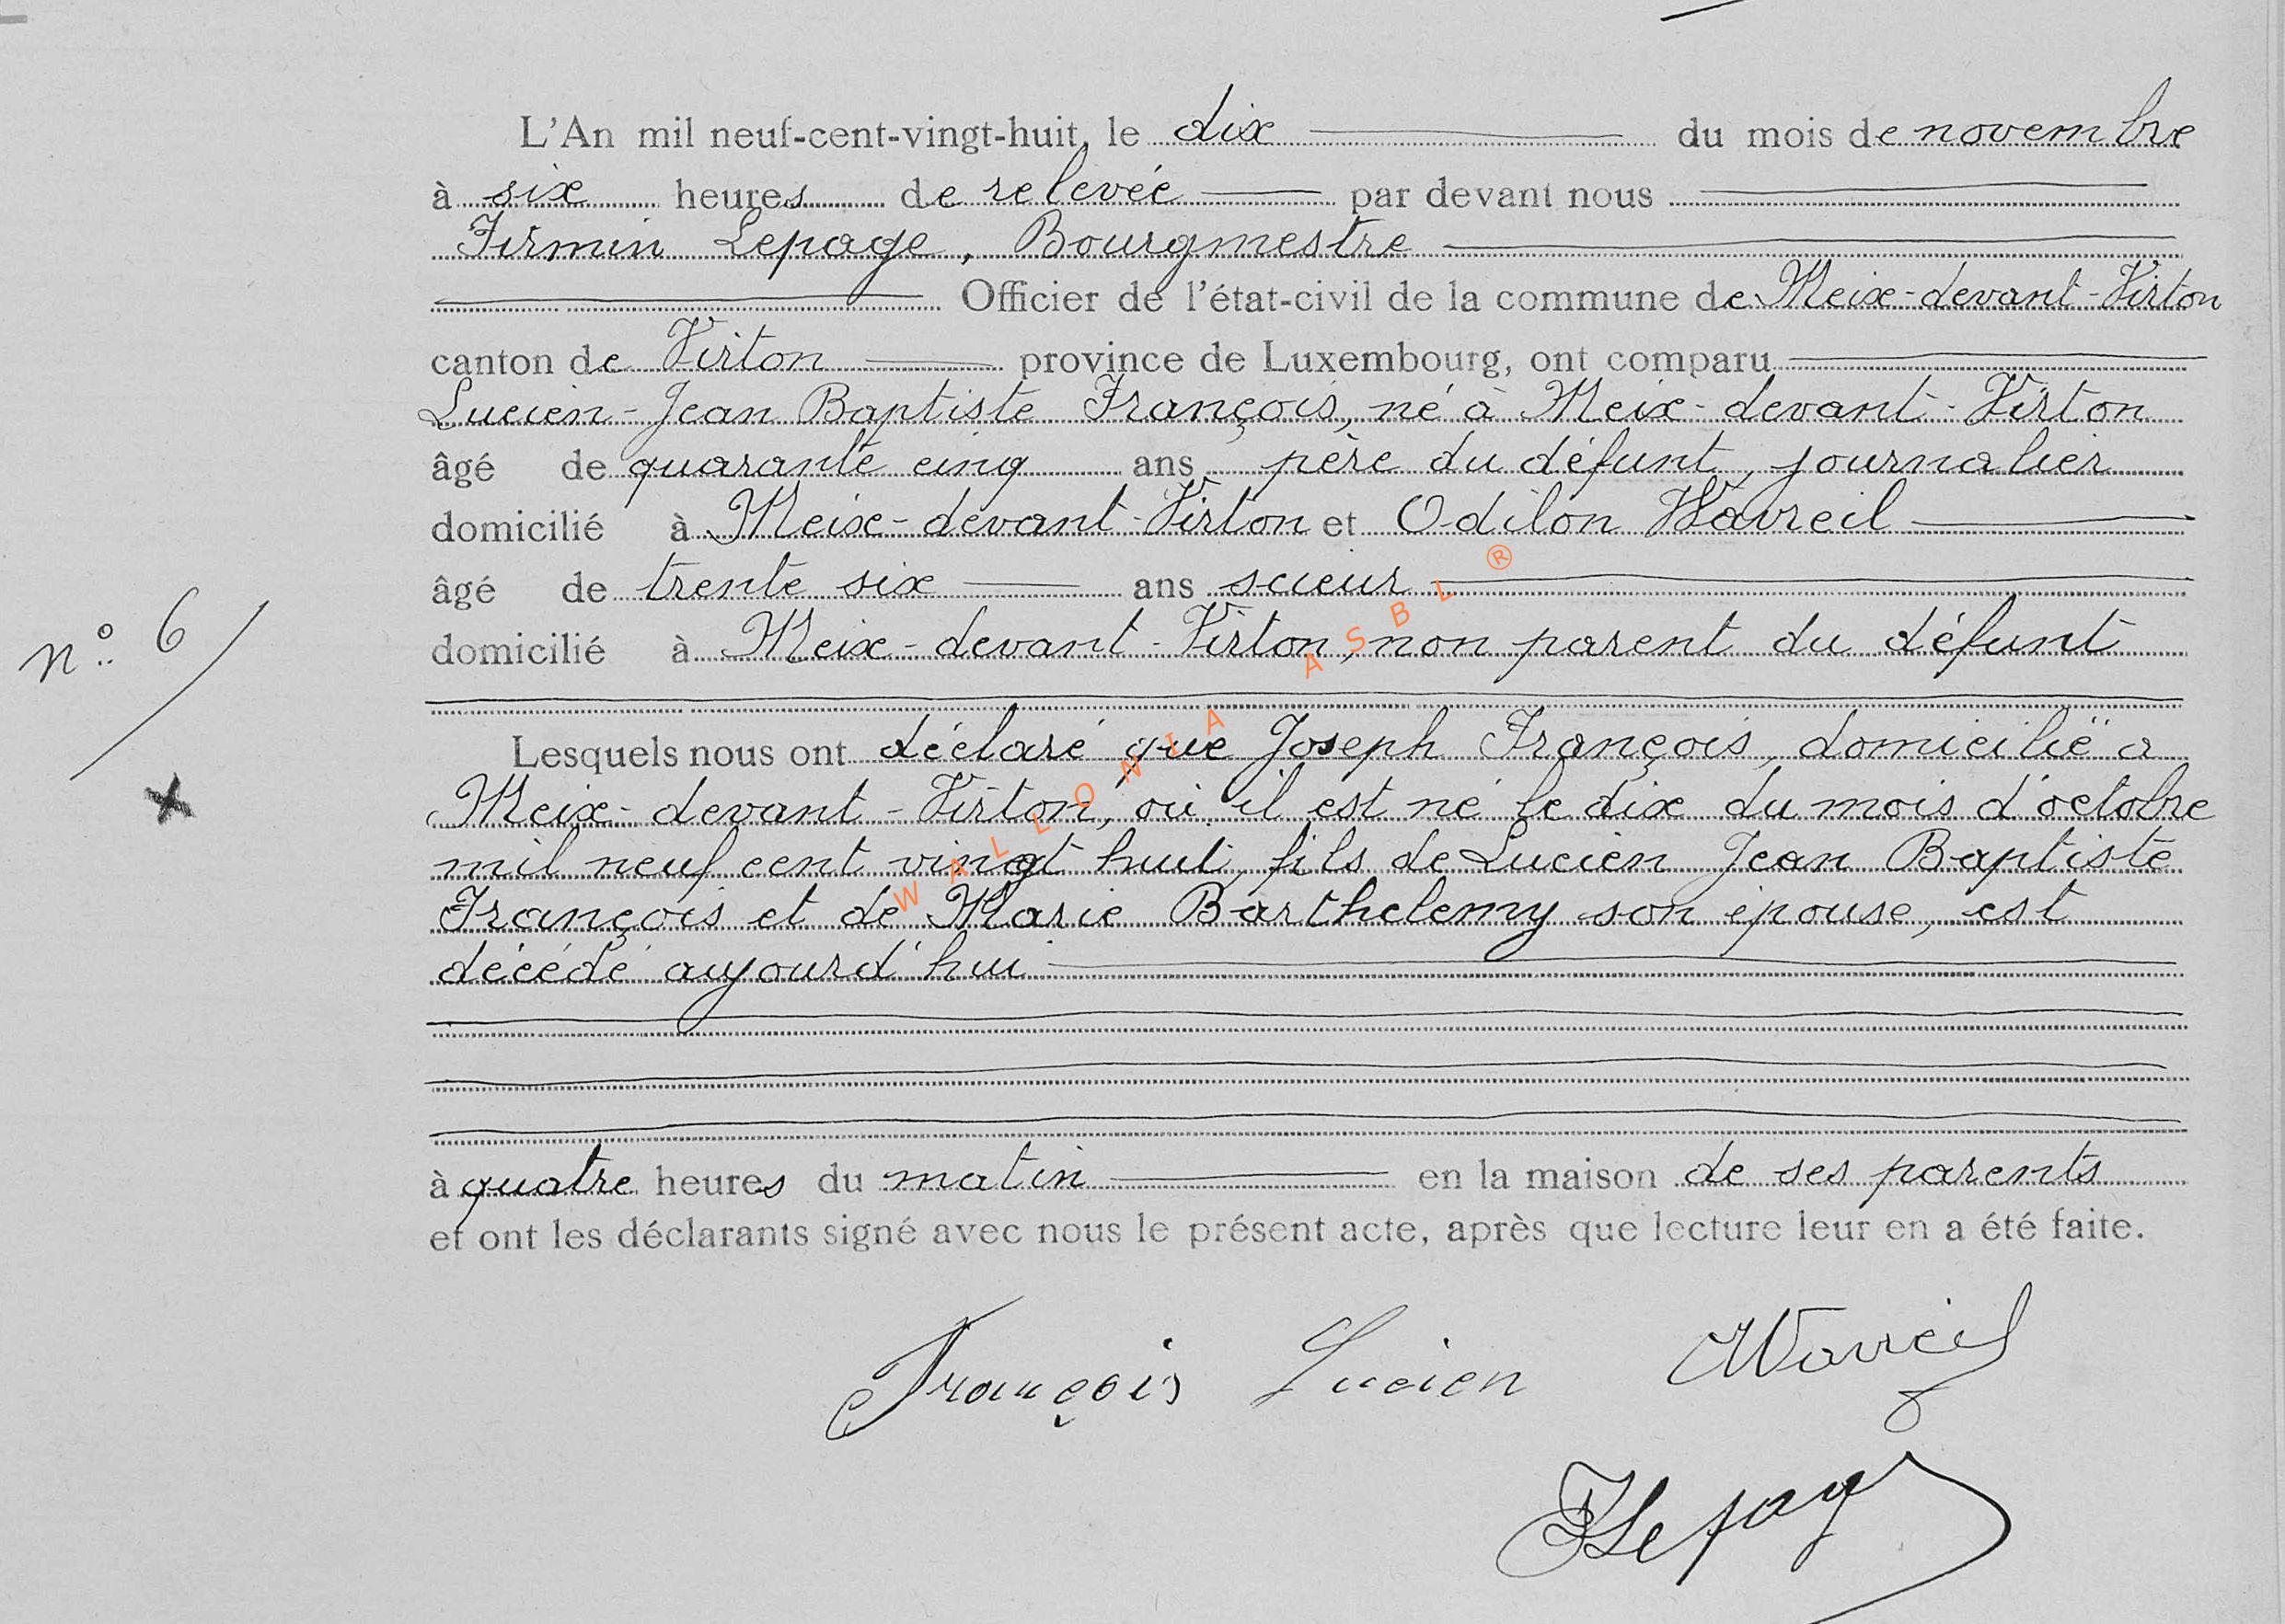 L'An mil neuf-cent-vingt-huit, le dix du mois de novembre
à six heures de relevée par devant nous
Firmin Lepage, Bourgmestre
Officier de l'état-civil de la commune de Meix-devant-Virton
canton de Virton province de Luxembourg, ont comparu
Lucien-Jean Baptiste François, né à Meix-devant-Virton
âgé de quarante cinq ans père du défunt, journalier
domicilié à Meix-devant-Virton et Odilon Wavreil
âgé de trente six ans scieur
nº 6
domicilié à Meix-devant-Virton, non parent du défunt
Lesquels nous ont déclaré que Joseph François, domicilié à
Meix-devant-Virton, où il est né le dix du mois d'octobre
mil neuf cent vingt huit, fils de Lucien Jean Baptiste
François et de Marie Barthelemy son épouse, est
décédé aujourd'hui
à quatre heures du matin en la maison de ses parents
et ont les déclarants signé avec nous le présent acte, après que lecture leur en a été faite.
François Lucien Wavreil
FLepage
WALLONIA ASBL ®